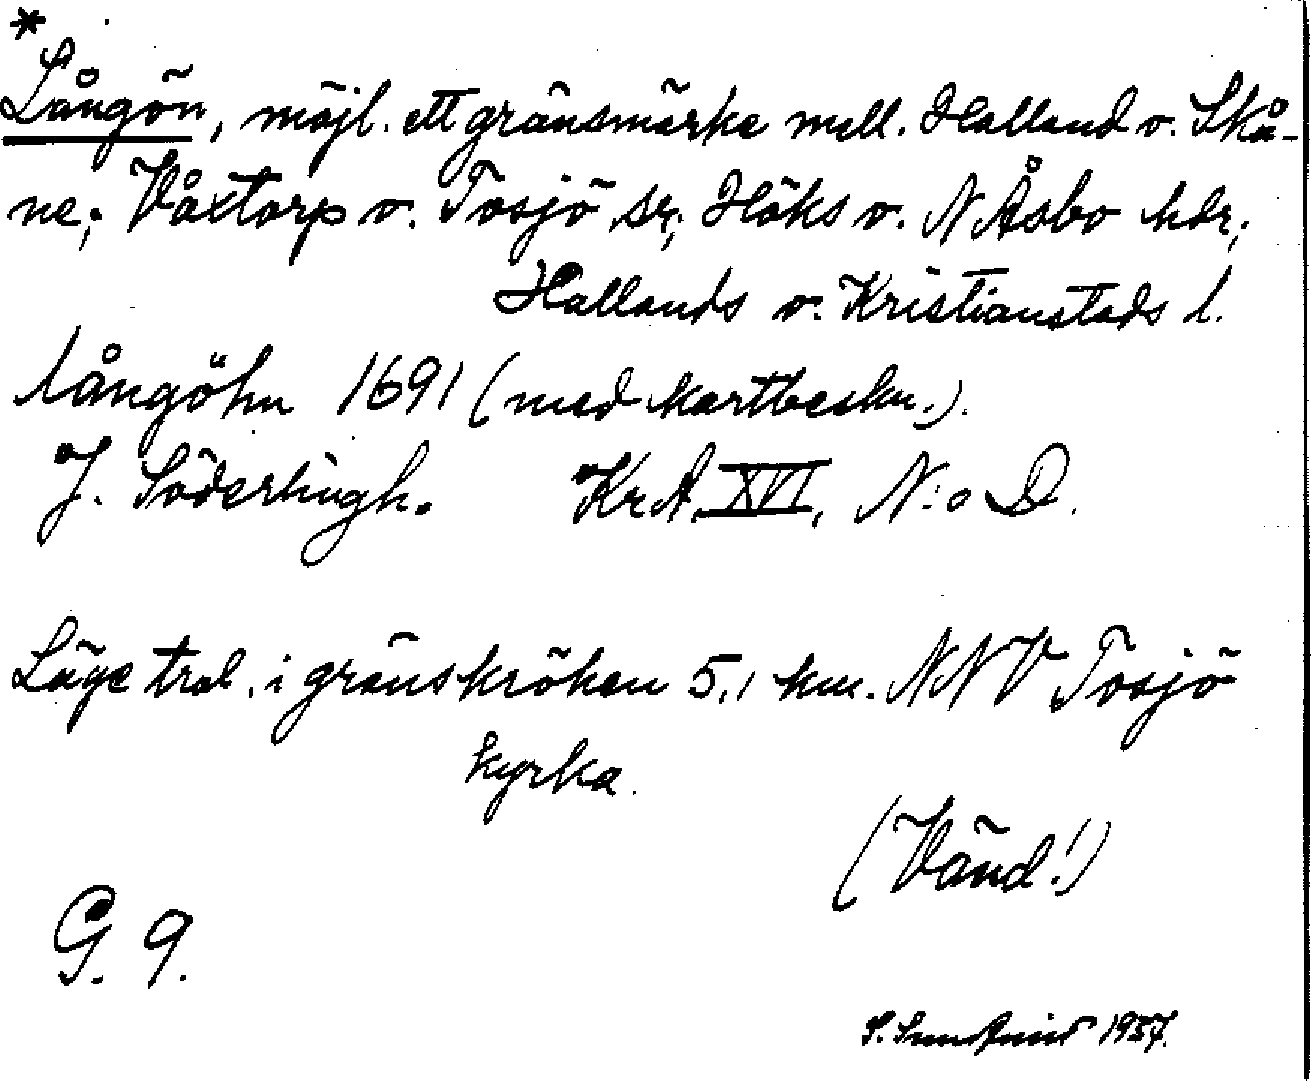 *
Långön, möjl. ett gränsmärke mell. Halland o. Skå-
ne; Våxtorp o. Tosjö sr; Höks o. N Åsbo hdr;
Hallands o. Kristianstads l.
långöhn 1691 (med kartbeskr.).
J. Söderlingh. KrA. XVI, N:o D.
Läge trol. i gränskröken 5,1 km. NNV Tosjö
kyrka.
(Vänd!)
G. 9.
S. Sundqvist 1937.